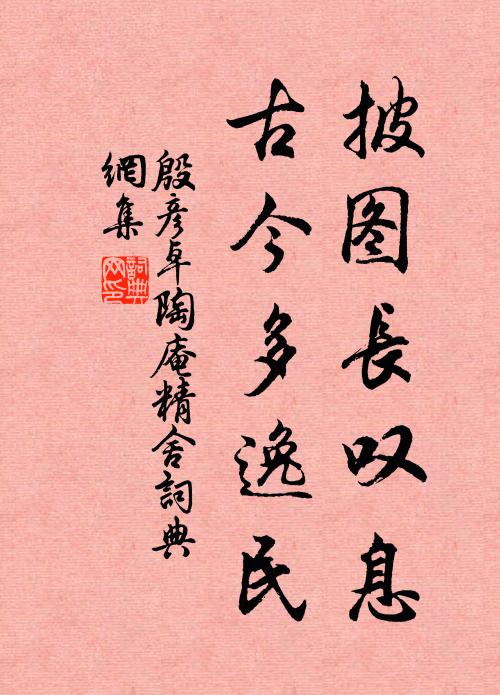 披图長叹息
古今多逸民
殷彦卓陶庵精舍詞典
網集
詞典
网印